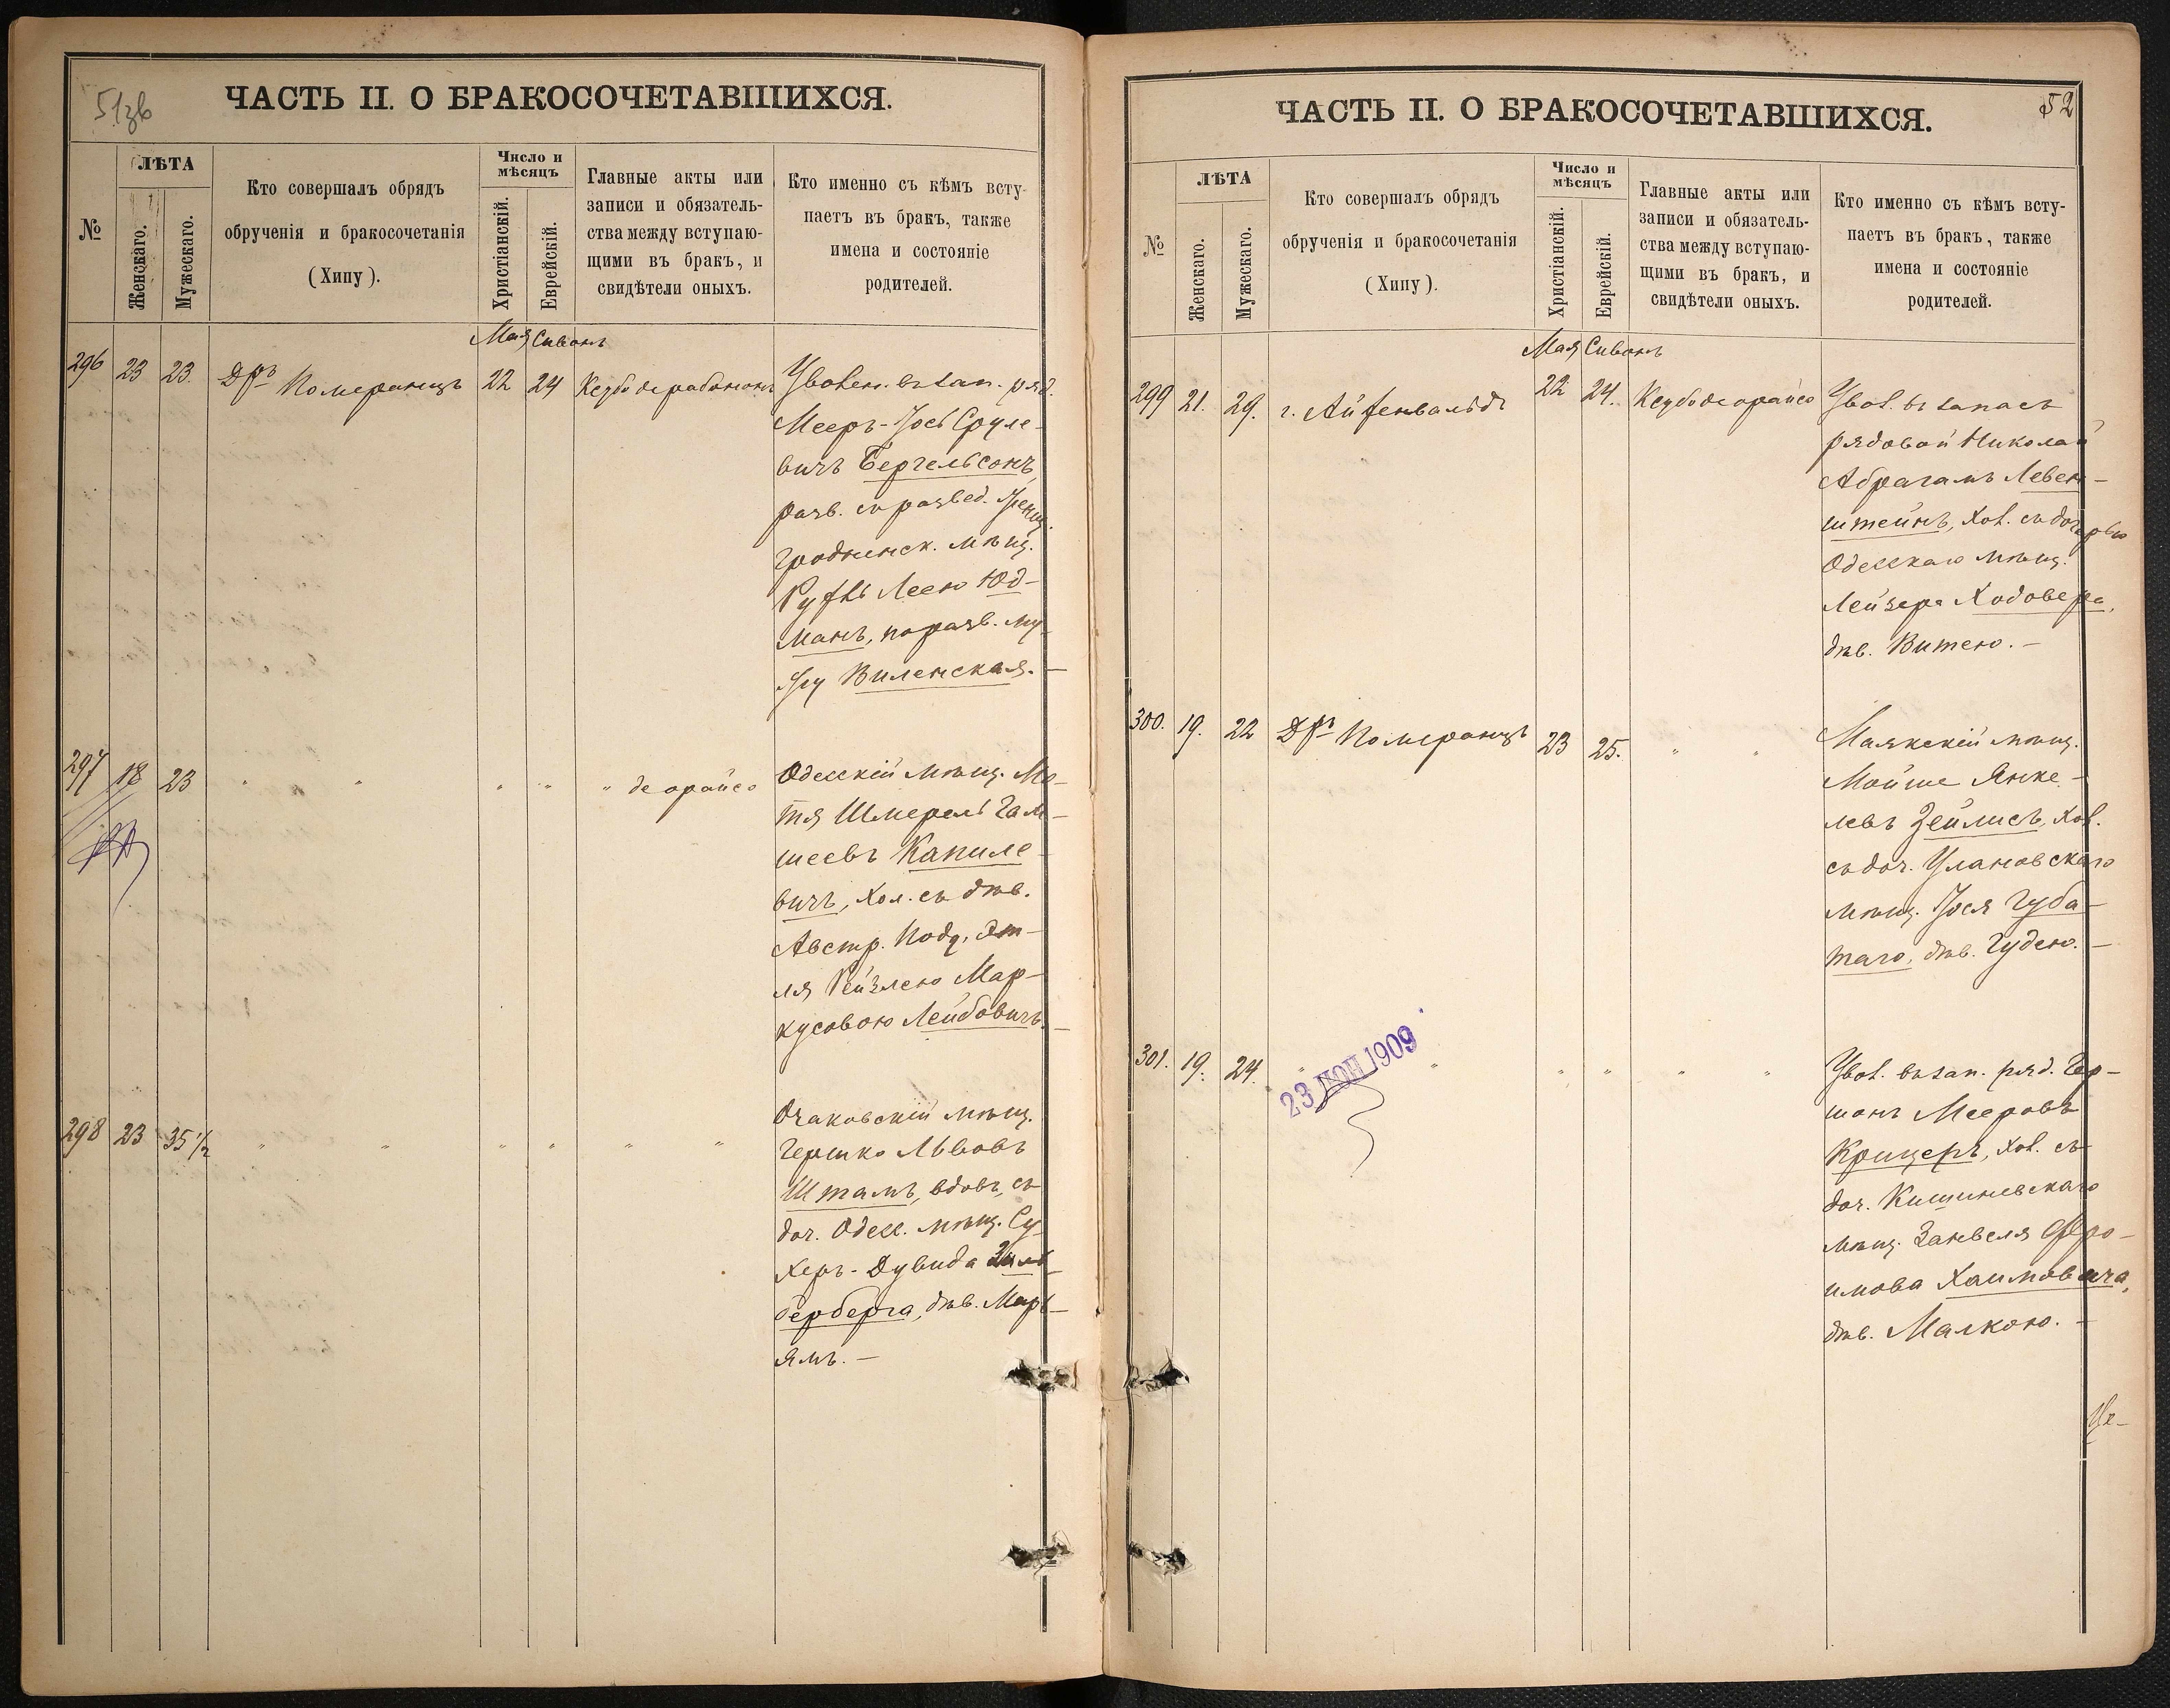 51 зв
ЧАСТЬ II. О БРАКОСОЧЕТАВШИХСЯ.
№
ЛѢТА
Женскаго.
Мужескаго.
Кто совершалъ обрядъ
обрученія и бракосочетанія
(Хипу).
Число и
мѣсяцъ
Христіанскій.
Еврейскій.
Главные акты или
записи и обязатель-
ства между вступаю-
щими въ бракъ, и
свидѣтели оныхъ.
Кто именно съ кѣмъ всту-
паетъ въ бракъ, также
имена и состояніе
родителей.
Мая Сиванъ
296 23 23. Дръ Померанцъ 22 24 Ксубо дерабононъ Уволен. въ зап. ряд.
Мееръ-Іось Сруле-
вичъ Бергельсонъ,
разв. съ развед. жен.
Гродненск. мѣщ.
Руфль Леею Юд-
манъ, по разв. му-
жу Виленская. —
297 18 23 " " " " " де орайсо Одесскій мѣщ. Мо-
тя Шмерель Гам-
шеевъ Капиле-
вичъ, хол. съ дѣв.
Австр. Подд. Эт-
ля Рейзлею Мар-
кусовою Лейбовичъ. —
298 23 35 1/2 " " " " " " Очаковскій мѣщ.
Гершко Львовъ
Штамъ, вдовъ, съ
доч. Одесс. мѣщ. Су-
херъ-Дувида Зиль-
берберга, дѣв. Марь-
ямъ. —
52
ЧАСТЬ II. О БРАКОСОЧЕТАВШИХСЯ.
№
ЛѢТА
Женскаго.
Мужескаго.
Кто совершалъ обрядъ
обрученія и бракосочетанія
(Хипу).
Число и
мѣсяцъ
Христіанскій.
Еврейскій.
Главные акты или
записи и обязатель-
ства между вступаю-
щими въ бракъ, и
свидѣтели оныхъ.
Кто именно съ кѣмъ всту-
паетъ въ бракъ, также
имена и состояніе
родителей.
Мая Сиванъ
299 21. 29. г. Айзенвальдъ 22 24. Ксубо деорайсо Увол. въ запасъ
рядовой Николай
Абрагамъ Левен-
штейнъ, хол. съ дочерью
Одесскаго мѣщ.
Лейзера Ходовера,
дѣв. Витею. —
300. 19. 22 Дръ Померанцъ 23 25. " " Маякскій мѣщ.
Мойше Янке-
левъ Зейлисъ, хол.
съ доч. Улановскаго
мѣщ. Іося Губа-
таго, дѣв. Гудею. —
301. 19. 24. " " " " " " Увол. въ зап. ряд. Гер-
шонъ Мееровъ
Крицеръ, хол. съ
доч. Кишиневскаго
мѣщ. Занвеля Фро-
имова Хаимовича,
дѣв. Малкою. —
23 ІЮН 1909